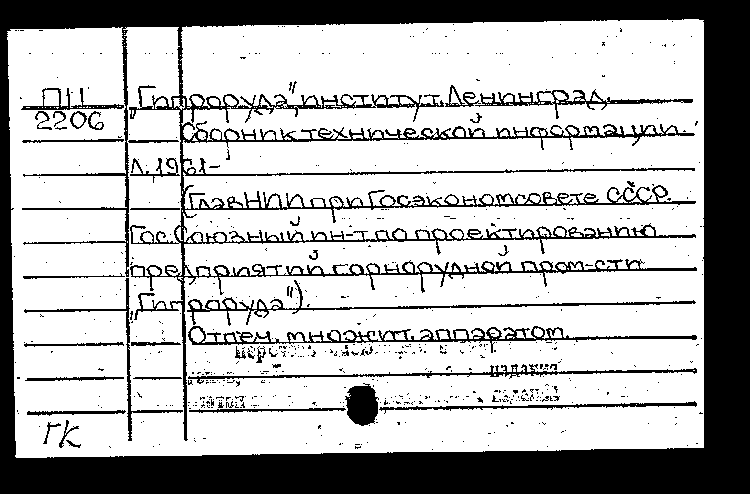 П11
2206
„Гипроруда", институт. Ленинград.
Сборник технической информации.
Л., 1961-
(ГлавНИИ при Госэкономсовете СССР.
Гос. Союзный ин-т по проектированию
предприятий горнорудной пром-сти
„Гипроруда").
Отпеч. множит. аппаратом.
издания
ГК